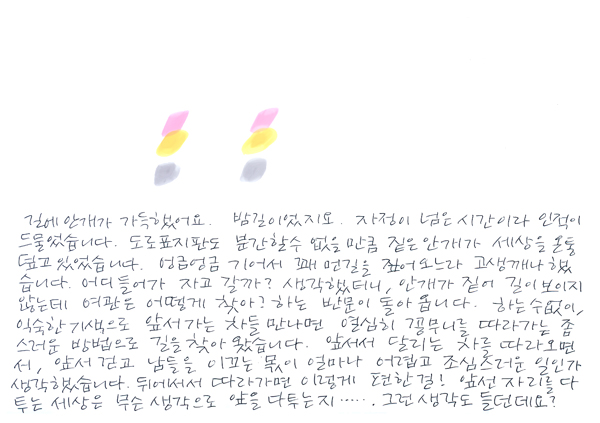 길에 안개가 가득했어요. 밤길이었지요. 자정이 넘은 시간이라 인적이
드물었습니다. 도로표지판도 분간할수 없을 만큼 짙은 안개가 세상을 온통
덮고 있었습니다. 엉금엉금 기어서 꽤 먼길을 짚어오느라 고생깨나 했
습니다. 어디들어가 자고 갈까? 생각했더니, 안개가 짙어 길이 보이지
않는데 여관은 어떻게 찾아? 하는 반문이 돌아 옵니다. 하는수없이,
익숙한 기색으로 앞서가는 차를 만나면 열심히 꽁무니를 따라가는 좀
스러운 방법으로 길을 찾아 왔습니다. 앞서서 달리는 차를 따라오면
서, 앞서 걷고 남들을 이끄는 몫이 얼마나 어렵고 조심스러운 일인가
생각했습니다. 뒤에서서 따라가면 이렇게 편한걸! 앞선 자리를 다
투는 세상은 무슨 생각으로 앞을 다투는지...... 그런 생각도 들던데요?